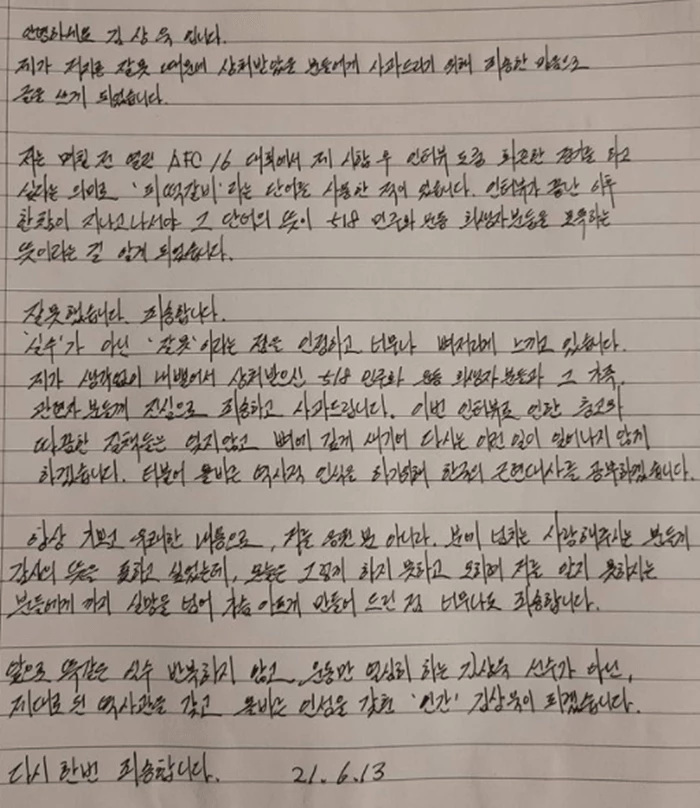 안녕하세요 김상욱 입니다.
제가 저지른 잘못 때문에 상처받았을 분들에게 사과드리기 위해 죄송한 마음으로
글을 쓰게 되었습니다.
저는 며칠 전 열린 AFC 16 대회에서 제 시합 후 인터뷰 도중 화끈한 경기를 하고
싶다는 의미로 '피떡갈비'라는 단어를 사용한 적이 있습니다. 인터뷰가 끝난 이후
한참이 지나고나서야 그 단어의 뜻이 518 민주화 운동 희생자분들을 모욕하는
뜻이라는 걸 알게 되었습니다.
잘못했습니다. 죄송합니다.
'실수'가 아닌 '잘못'이라는 점을 인정하고 너무나 뼈저리게 느끼고 있습니다.
제가 생각없이 내뱉어서 상처받으신 518 민주화 운동 희생자분들과 그 가족,
관련자분들께 진심으로 죄송하고 사과드립니다. 이번 인터뷰로 인한 충고와
따끔한 질책들은 잊지않고 뼈에 깊게 새기어 다시는 이런 일이 일어나지 않게
하겠습니다. 더불어 올바른 역사적 인식을 하기위해 한국의 근현대사를 공부하겠습니다.
항상 저보면 유쾌한 내용으로, 저를 응원뿐 아니라. 분에 넘치는 사랑해주시는 분들께
감사의 뜻을 표하고 싶었는데, 오늘은 그렇게 하지 못하고 오히려 저를 알지 못하시는
분들에게 까지 실망을 넘어 가슴 아프게 만들어 드린 점 너무나도 죄송합니다.
앞으로 똑같은 실수 반복하지 않고 운동만 열심히 하는 김상욱 선수가 아닌,
제대로 된 역사관을 갖고 올바른 인성을 갖춘 '인간' 김상욱이 되겠습니다.
다시 한번 죄송합니다. 21.6.13